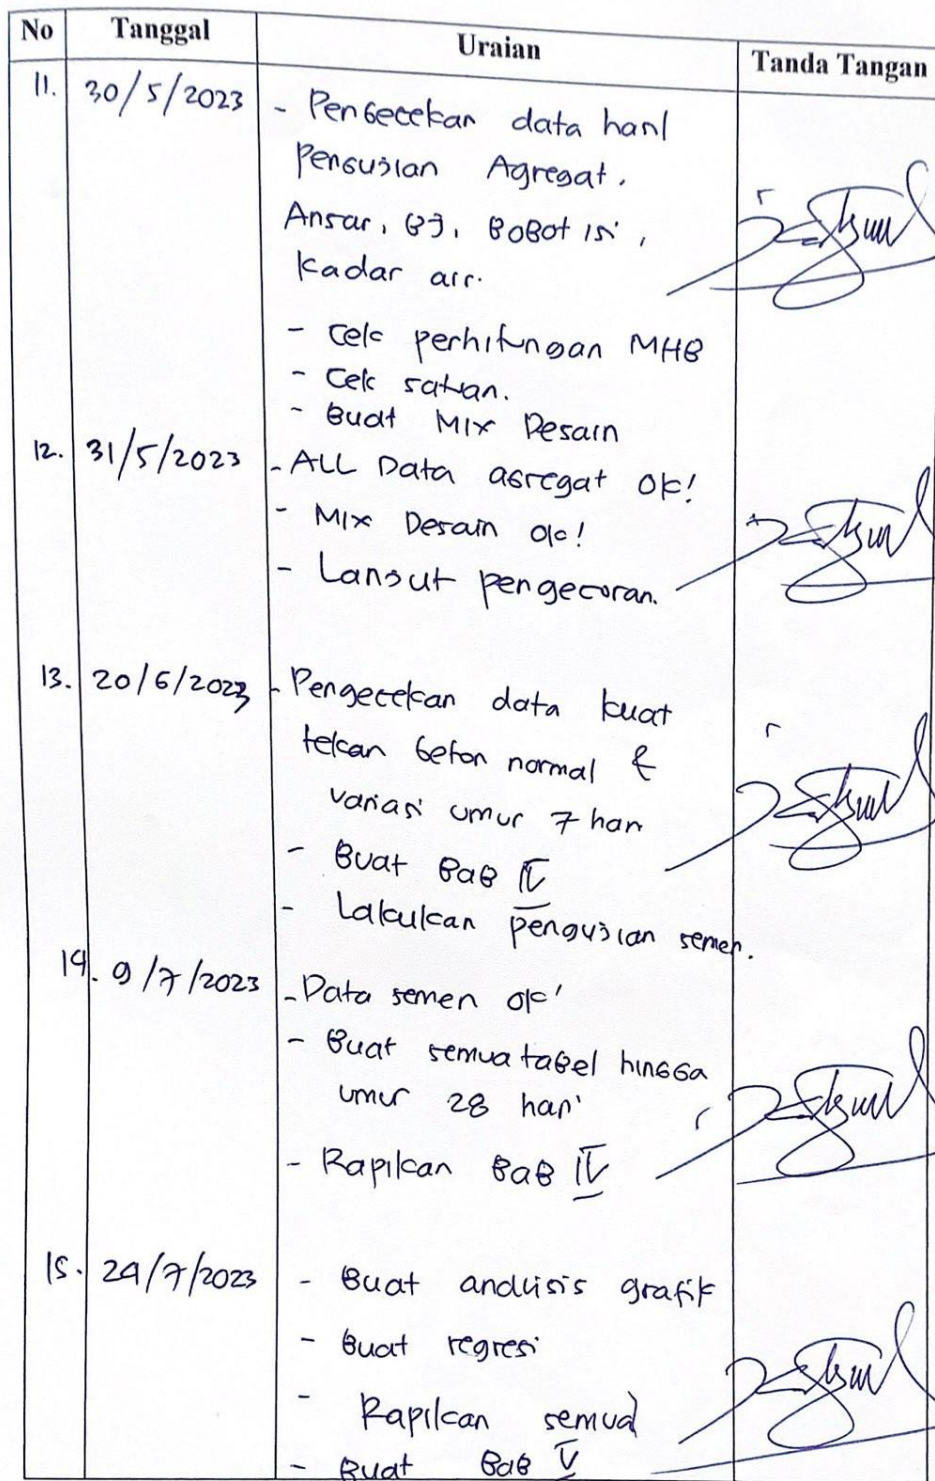 No Tanggal Uraian Tanda Tangan
11. 30/5/2023 - Pengecekan data hasil
Pengujian Agregat.
Ansar, BJ, BoBot isi,
Kadar air.
- Cek perhitungan MHB
- Cek satuan.
- Buat Mix Desain
12. 31/5/2023 - ALL Data agregat ok!
- Mix Desain ok!
- Lanjut pengecoran.
13. 20/6/2023 - Pengecekan data kuat
tekan beton normal &
variasi umur 7 hari
- Buat BaB IV
- Lakukan pengujian semen.
14. 9/7/2023 - Data semen ok!
- Buat semua tabel hingga
umur 28 hari
- Rapikan BaB IV
15. 24/7/2023 - Buat analisis grafik
- Buat regresi
- Rapikan semua
- Buat BaB V